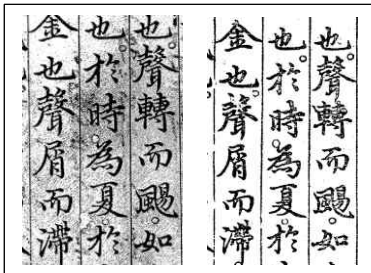 也。聲轉而颺。如
也。於時。為夏。於
金也。聲屑而滯
也。聲轉而颺。如
也。於時。為夏。於
金也。聲屑而滯